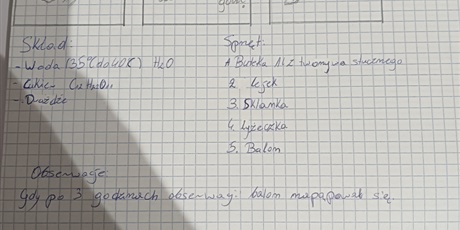 Skład:
- Woda (35°C do 40°C) H₂O
- Cukier - C₁₂H₂₂O₁₁
- Drożdże
Sprzęt:
1. Butelka 1L z tworzywa sztucznego
2. Lejek
3. Szklanka
4. Łyżeczka
5. Balon
Obserwacje
Gdy po 3 godzinach obserwacji balon napompował się.